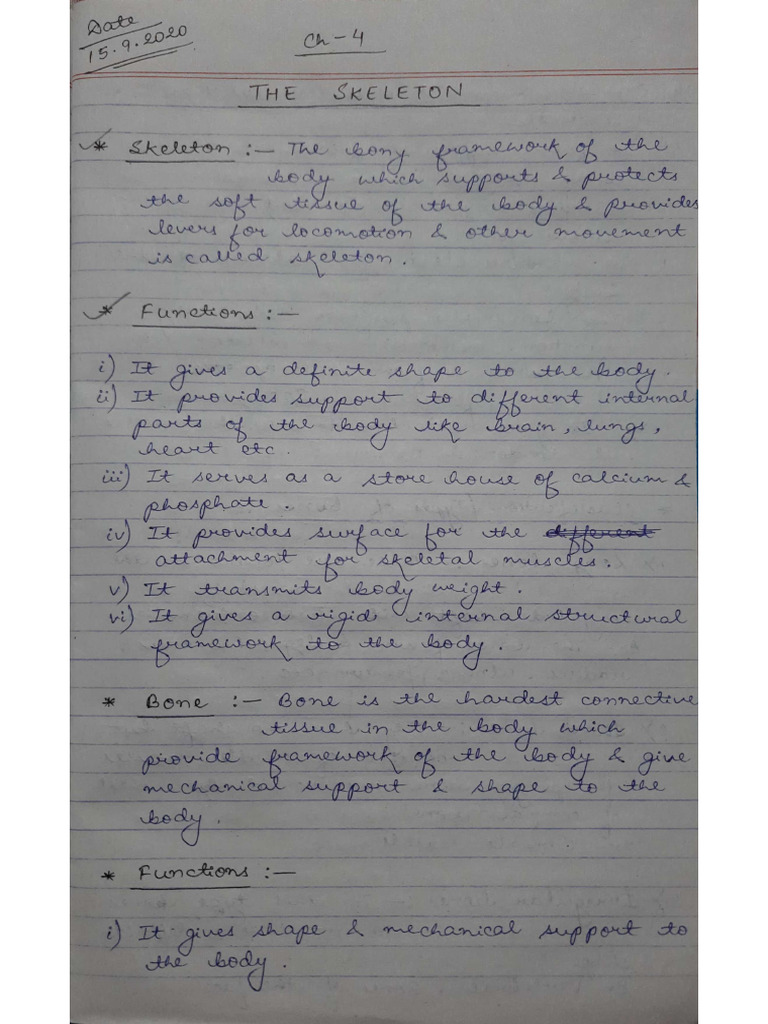 Date
15.9.2020
Ch-4
THE SKELETON
* Skeleton :- The bony framework of the
body which supports & protects
the soft tissue of the body & provides
levers for locomotion & other movement
is called skeleton.
* Functions :-
i) It gives a definite shape to the body.
ii) It provides support to different internal
parts of the body like brain, lungs,
heart etc.
iii) It serves as a store house of calcium &
phosphate.
iv) It provides surface for the different
attachment for skeletal muscles.
v) It transmits body weight.
vi) It gives a rigid internal structural
framework to the body.
* Bone :- Bone is the hardest connective
tissue in the body which
provide framework of the body & give
mechanical support & shape to the
body.
* Functions :-
i) It gives shape & mechanical support to
the body.